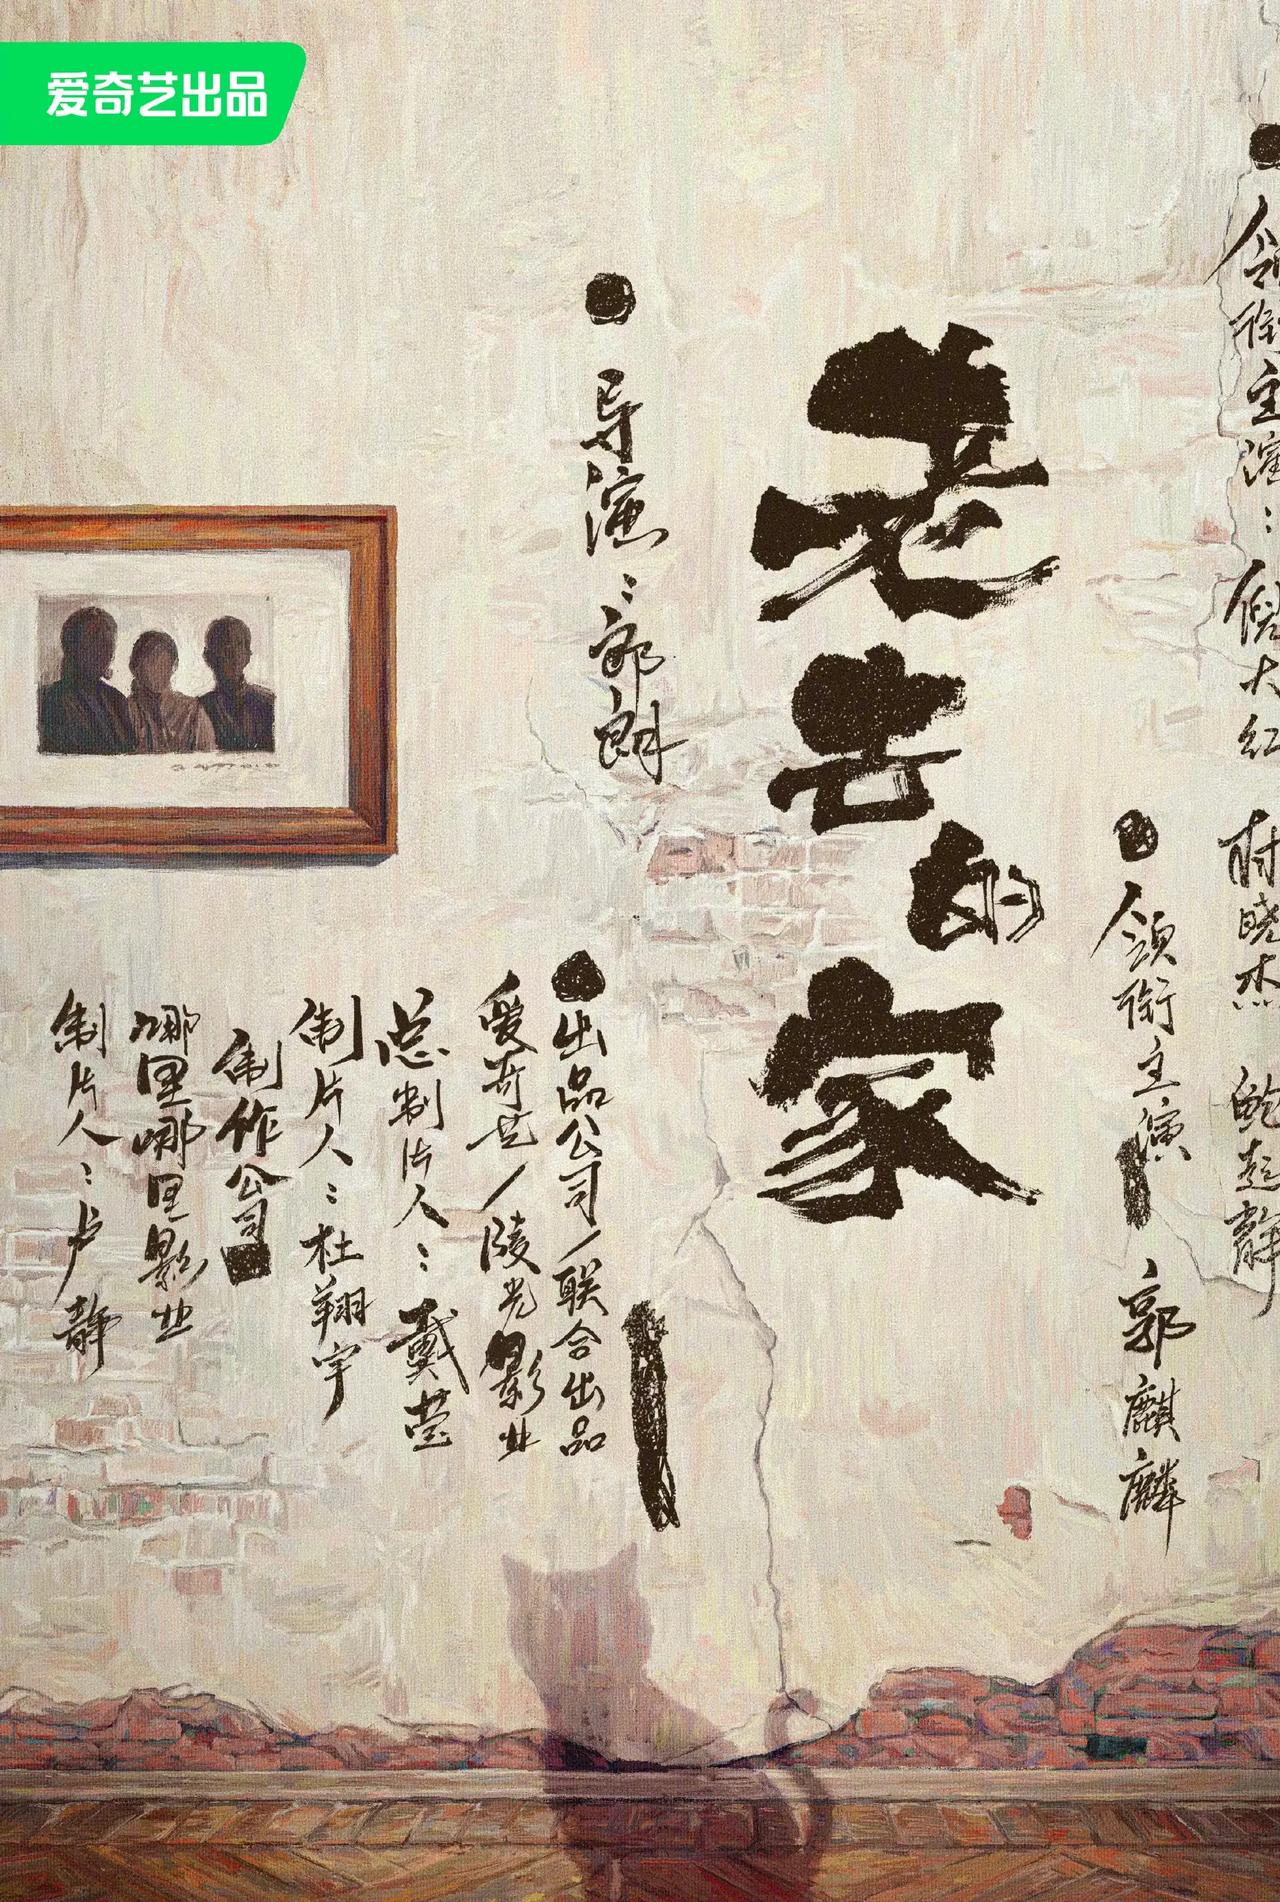 爱奇艺出品
领衔主演：倪大红 时晓杰 鲍起静
领衔主演 郭麒麟
老去的家
导演：郭朗
出品公司/联合出品
爱奇艺/陵光影业
总制片人：戴莹
制片人：杜翔宇
制作公司
哪里哪里影业
制片人：卢静